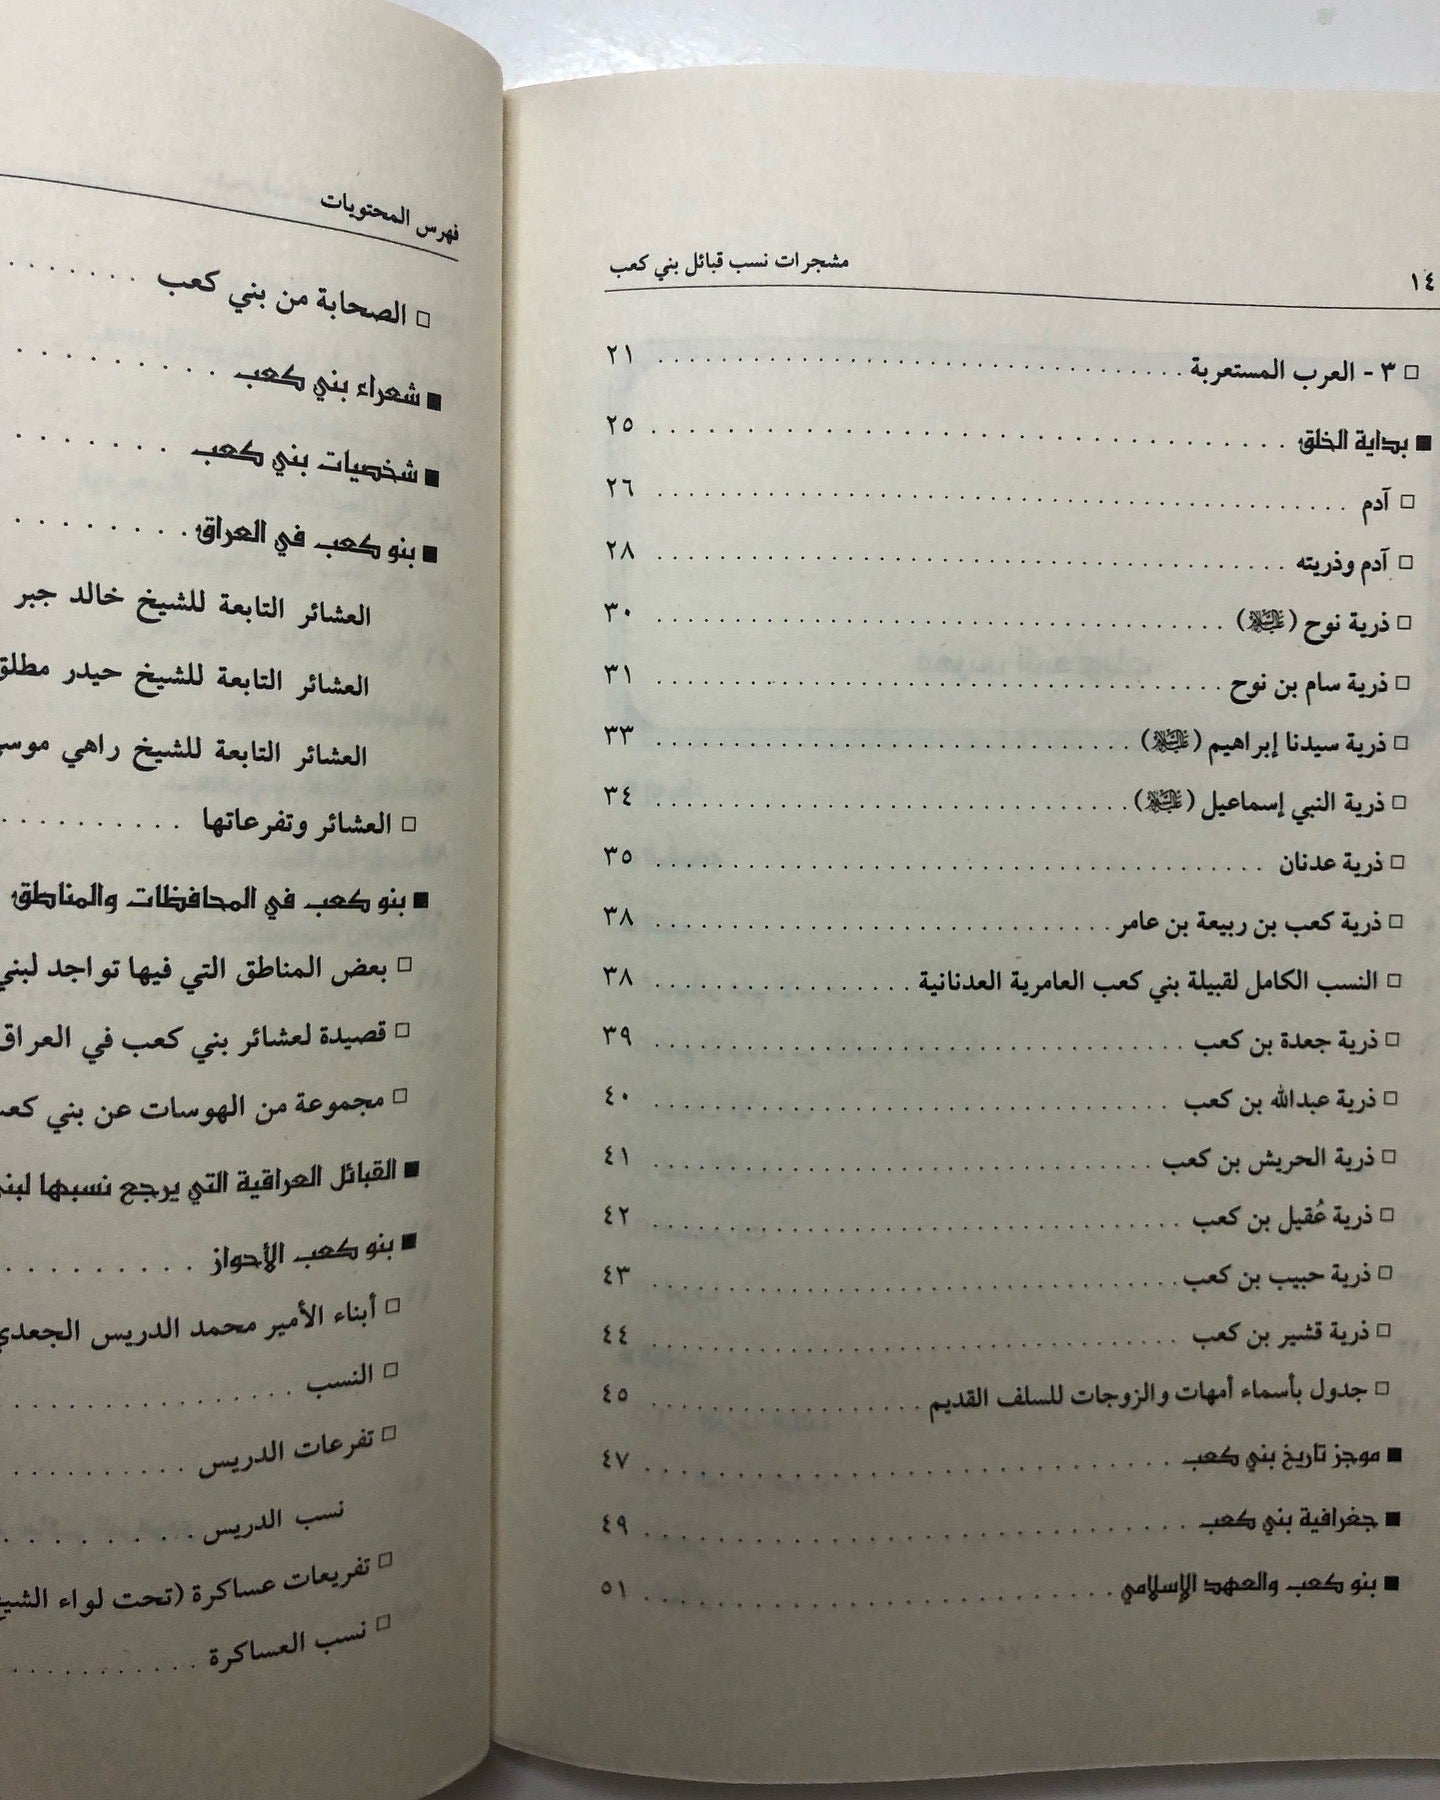 ١٤
مشجرات نسب قبائل بني كعب
□ ٣ - العرب المستعربة ٢١
■ بداية الخلق ٢٥
□ آدم ٢٦
□ آدم وذريته ٢٨
□ ذرية نوح (عليه السلام) ٣٠
□ ذرية سام بن نوح ٣١
□ ذرية سيدنا إبراهيم (عليه السلام) ٣٣
□ ذرية النبي إسماعيل (عليه السلام) ٣٤
□ ذرية عدنان ٣٥
□ ذرية كعب بن ربيعة بن عامر ٣٨
□ النسب الكامل لقبيلة بني كعب العامرية العدنانية ٣٨
□ ذرية جعدة بن كعب ٣٩
□ ذرية عبدالله بن كعب ٤٠
□ ذرية الحريش بن كعب ٤١
□ ذرية عُقيل بن كعب ٤٢
□ ذرية حبيب بن كعب ٤٣
□ ذرية قشير بن كعب ٤٤
□ جدول بأسماء أمهات والزوجات للسلف القديم ٤٥
■ موجز تاريخ بني كعب ٤٧
■ جغرافية بني كعب ٤٩
■ بنو كعب والعهد الإسلامي ٥١
فهرس المحتويات
□ الصحابة من بني كعب
■ شعراء بني كعب
■ شخصيات بني كعب
■ بنو كعب في العراق
العشائر التابعة للشيخ خالد جبر
العشائر التابعة للشيخ حيدر مطلق
العشائر التابعة للشيخ راهي
□ العشائر وتفرعاتها
■ بنو كعب في المحافظات والمناطق
□ بعض المناطق التي فيها تواجد لبني
□ قصيدة لعشائر بني كعب في العراق
□ مجموعة من الهوسات عن بني
■ القبائل العراقية التي يرجع نسبها
■ بنو كعب الأحواز
□ أبناء الأمير محمد الدريس الجعدي
□ النسب
□ تفرعات الدريس
نسب الدريس
□ تفريعات عساكرة (تحت لواء
□ نسب العساكرة